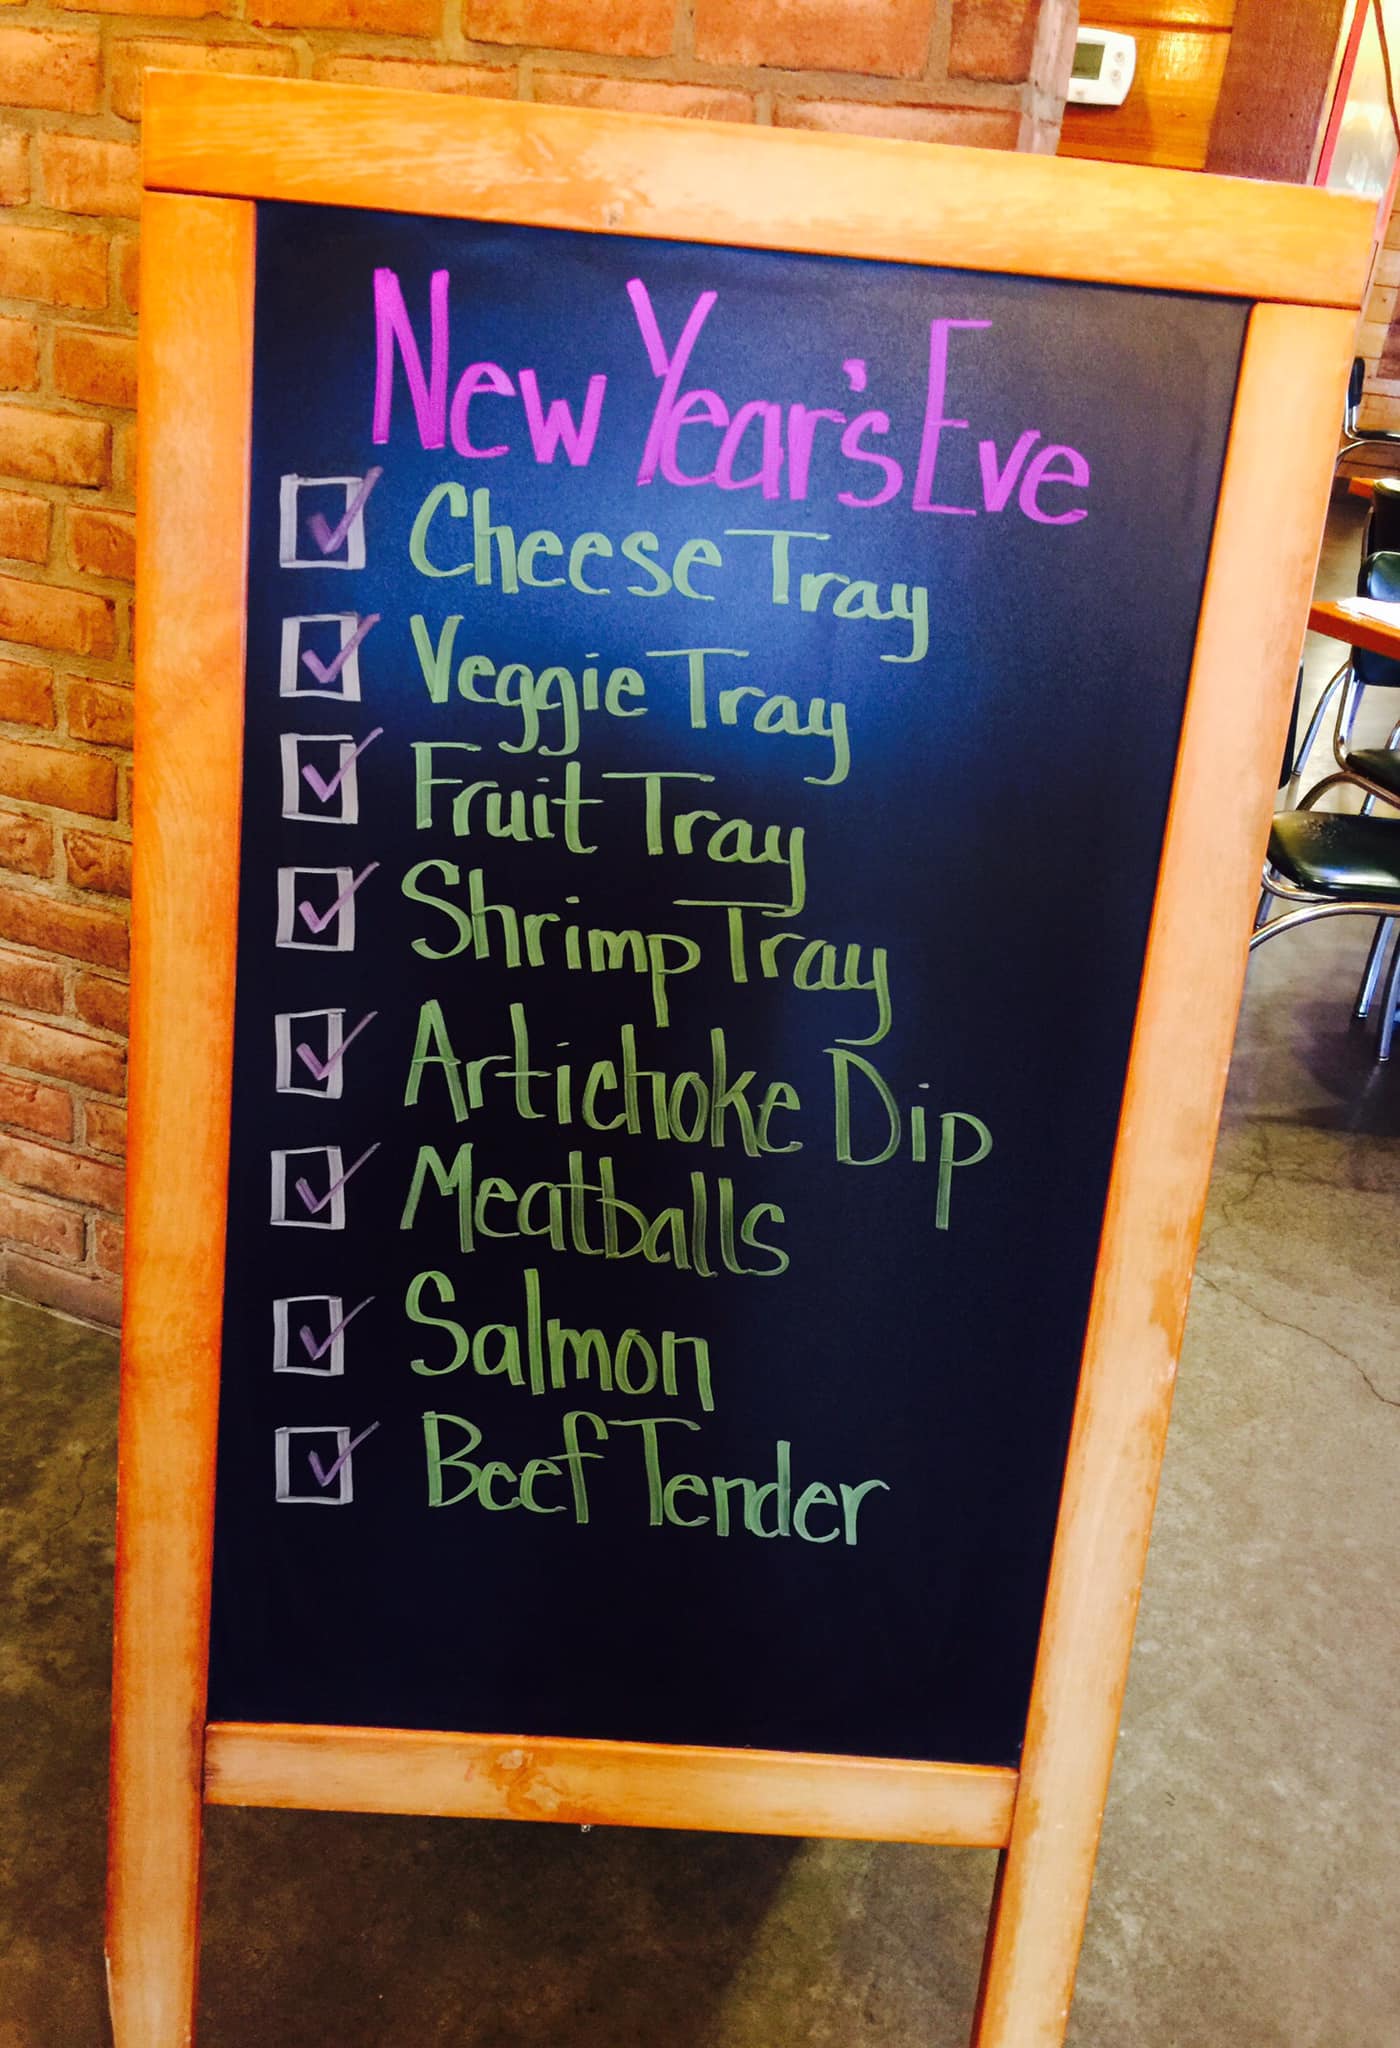 New Year's Eve
Cheese Tray
Veggie Tray
Fruit Tray
Shrimp Tray
Artichoke Dip
Meatballs
Salmon
Beef Tender